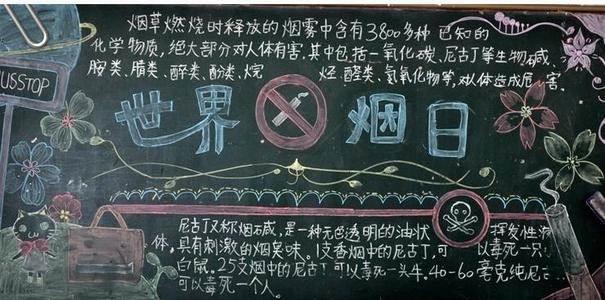 烟草燃烧时释放的烟雾中含有3800多种已知的
化学物质,绝大部分对人体有害,其中包括一氧化碳、尼古丁等生物碱、
胺类、腈类、醇类、酚类、烷烃、醛类、氢氧化物等,对人体造成危害.
USSTOP
世界 烟日
尼古丁又称烟碱,是一种无色透明的油状挥发性
体,具有刺激的烟臭味。1支香烟中的尼古丁,可以毒死一只
白鼠。25支烟中的尼古丁可以毒死一头牛。40-60毫克纯尼
可以毒死一个人。